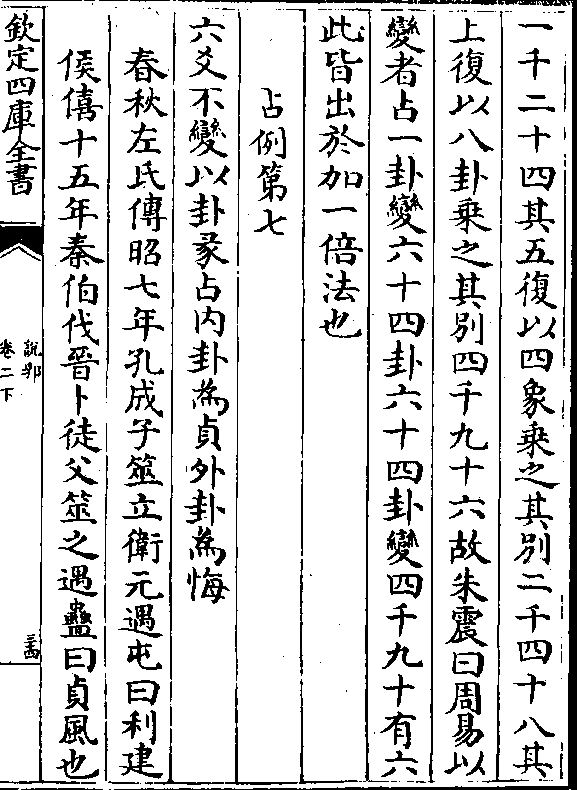 一千二十四其五復以四象乗之其别二千四十八其
上復以八卦乗之其别四千九十六故朱震曰周易以
變者占一卦變六十四卦六十四卦變四千九十有六
此皆出於加一倍法也
占例第七
六爻不變以卦彖占内卦為貞外卦為悔
春秋左氏傳昭七年孔成子筮立衛元遇屯曰利建
侯僖十五年秦伯伐晉卜徒父筮之遇蠱曰貞風也
欽定四庫全書
卷二下